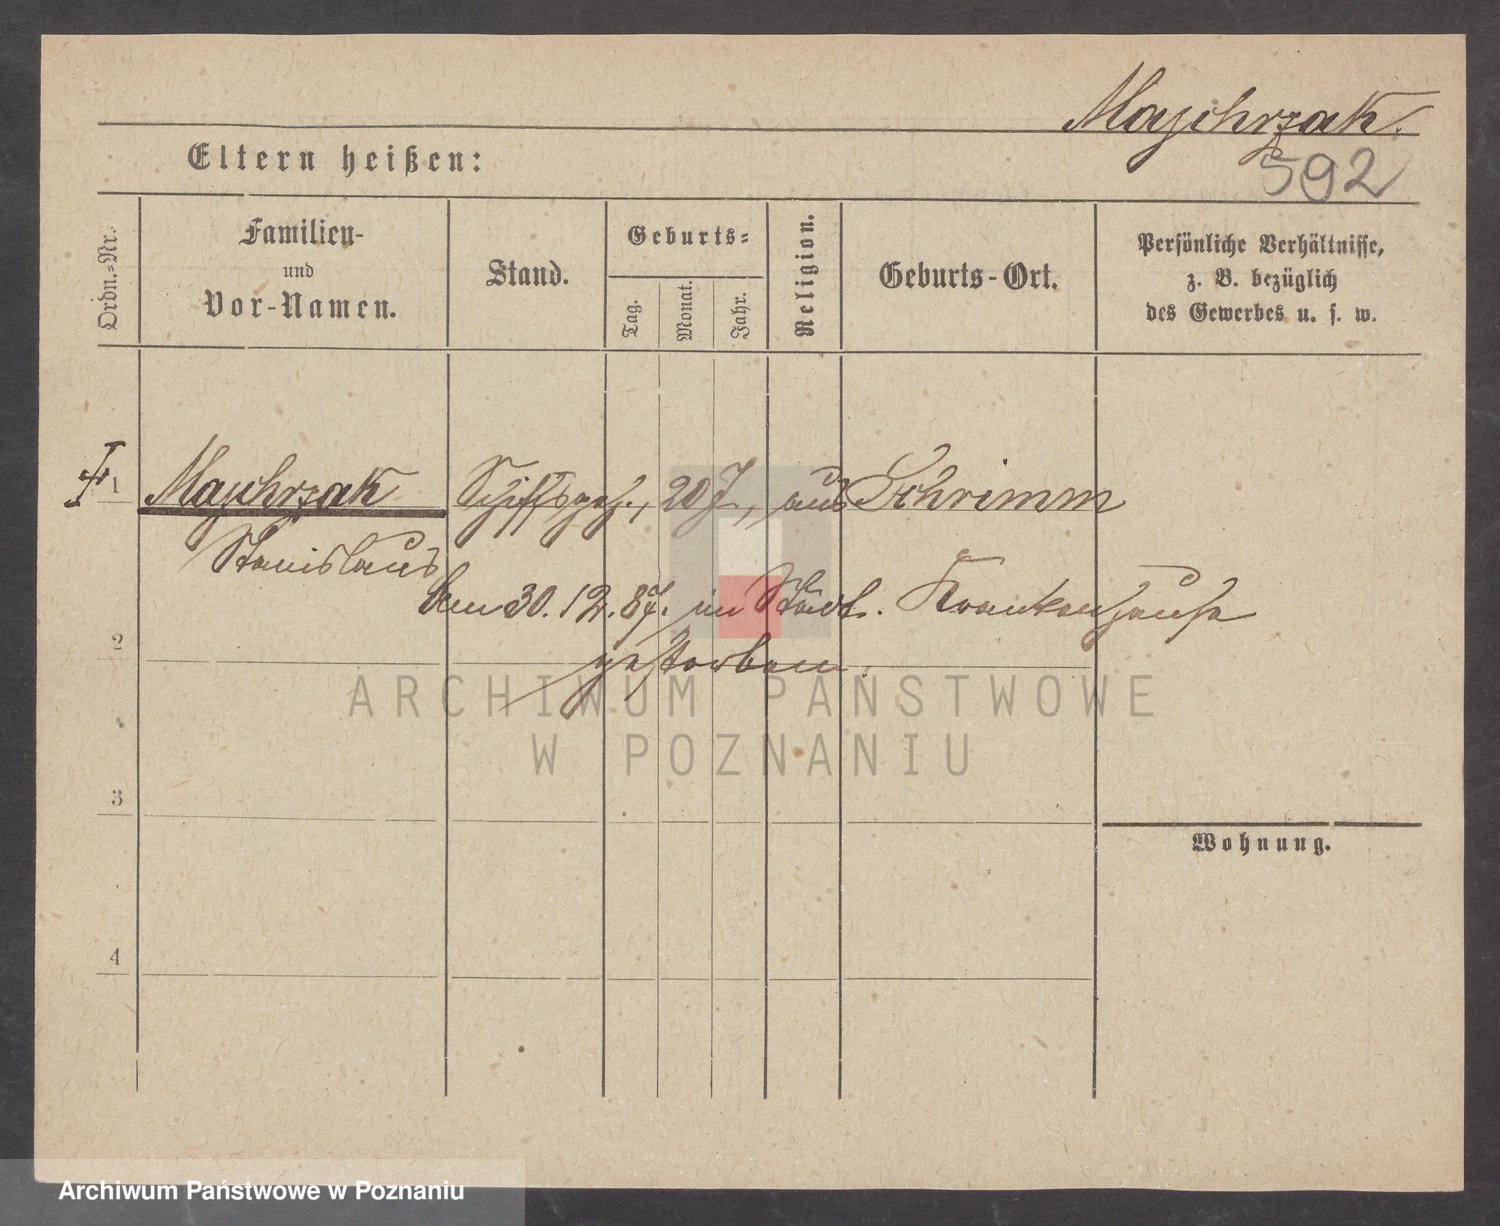 Majchrzak.
592
Eltern heißen:
Ordn.-Nr.
Familien-
und
Vor-Namen.
Stand.
Geburts-
Tag.
Monat.
Jahr.
Religion.
Geburts-Ort.
Persönliche Verhältnisse,
z. B. bezüglich
des Gewerbes u. s. w.
1 Majchrzak Schiffsgeh., 20 J., aus Schrimm
Stanislaus
den 30.12.87. im Städt. Krankenhause
gestorben.
2
3
4
Wohnung.
ARCHIWUM PAŃSTWOWE
W POZNANIU
Archiwum Państwowe w Poznaniu